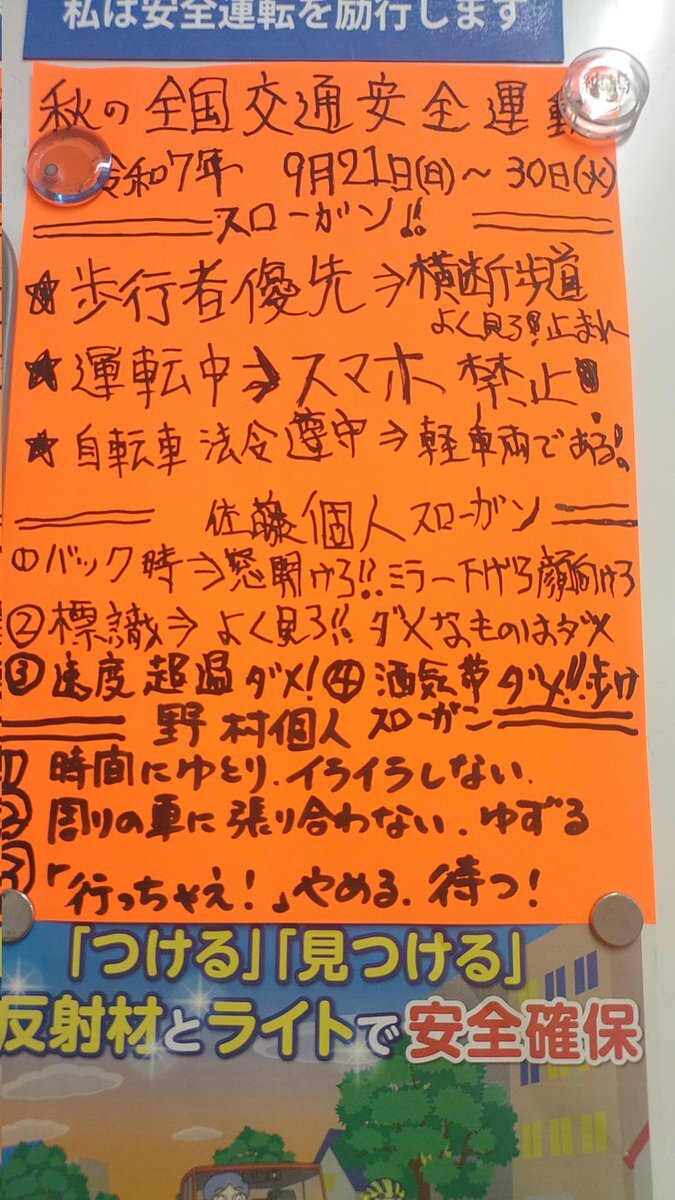 私は安全運転を励行します
秋の全国交通安全運動
令和7年 9月21日(日)～30日(火)
スローガン!!
★歩行者優先⇒横断歩道
よく見ろ!!止まれ
★運転中⇒スマホ禁止!
★自転車法令遵守⇒軽車両である!
佐藤個人スローガン
①バック時⇒窓開けろ!!ミラー下げろ顔向けろ
②標識⇒よく見ろ!!ダメなものはダメ
③速度超過ダメ!④酒気帯ダメ!!歩け
野村個人スローガン
① 時間にゆとり.イライラしない.
② 周りの車に張り合わない.ゆずる
③「行っちゃえ!」やめる.待つ!
「つける」「見つける」
反射材とライトで安全確保